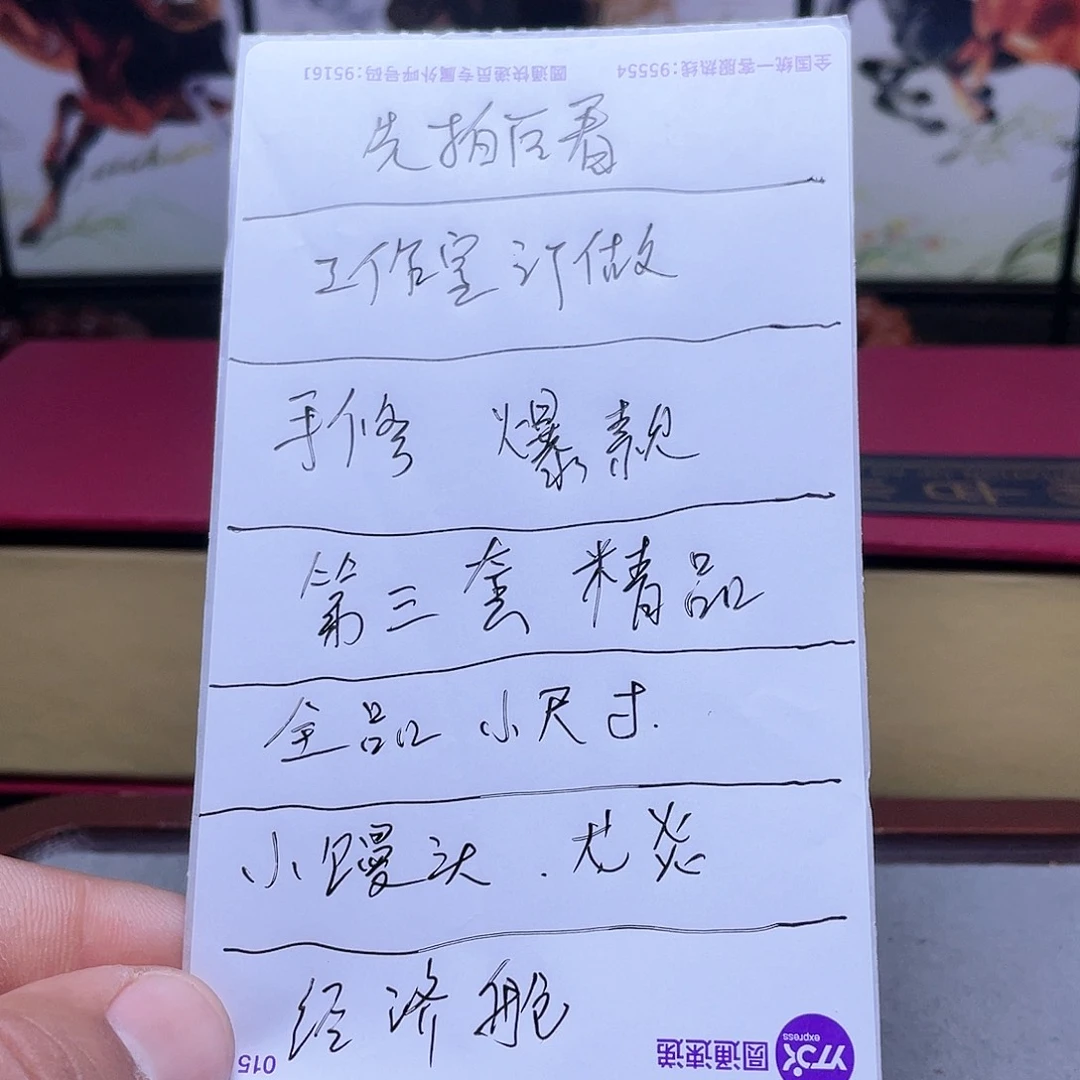 全国统一客服热线:95554 圆通快递员专属外呼号码:95161
先拍后看
工作室订做
手修 爆款
第三套 精品
全品 小尺寸.
小馒头.尤炎
经济舱
015 圆通速递 YTO express